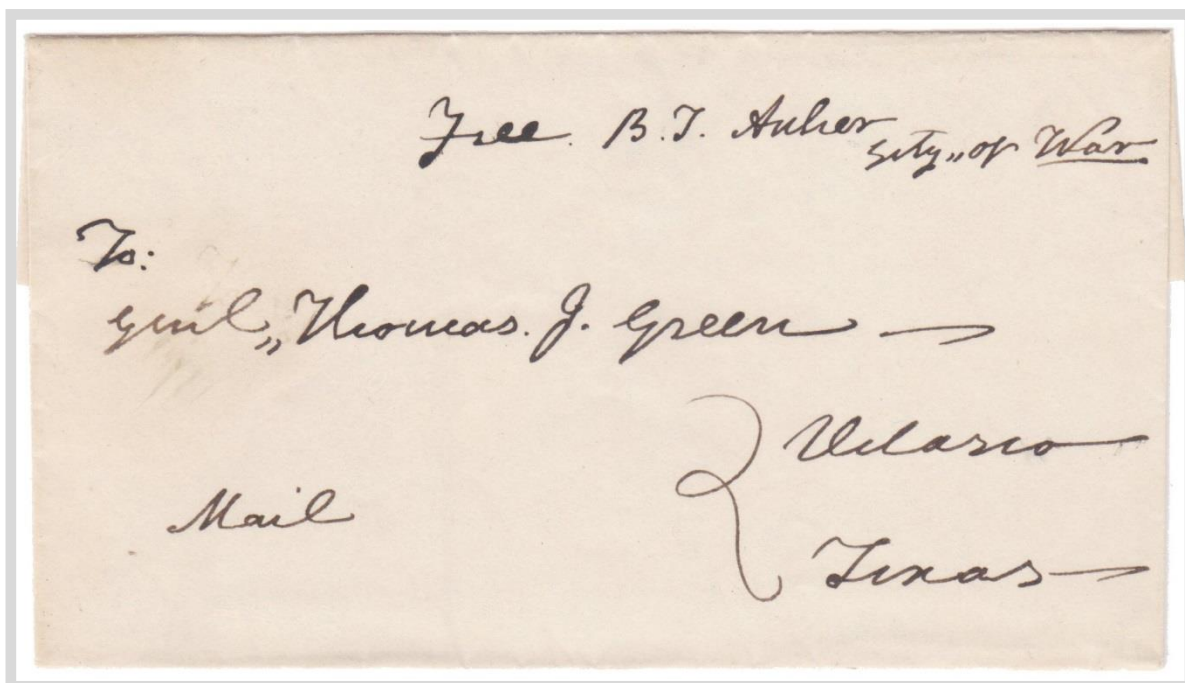 Free. B. T. Archer
Scty,, of War
To:
Genl,, Thomas. J. Green
Velasco
Mail
Texas